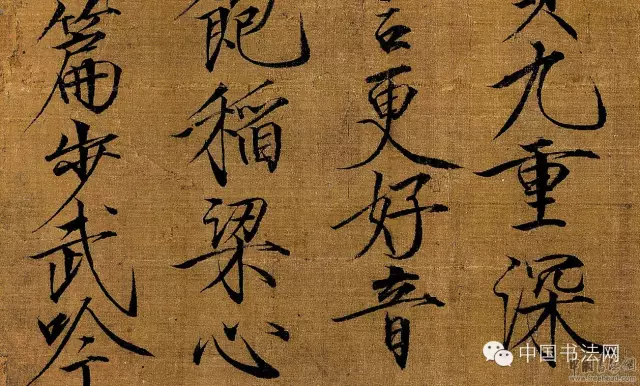 九重深
更好音
飽稻梁心
篇步武吟
中国书法网